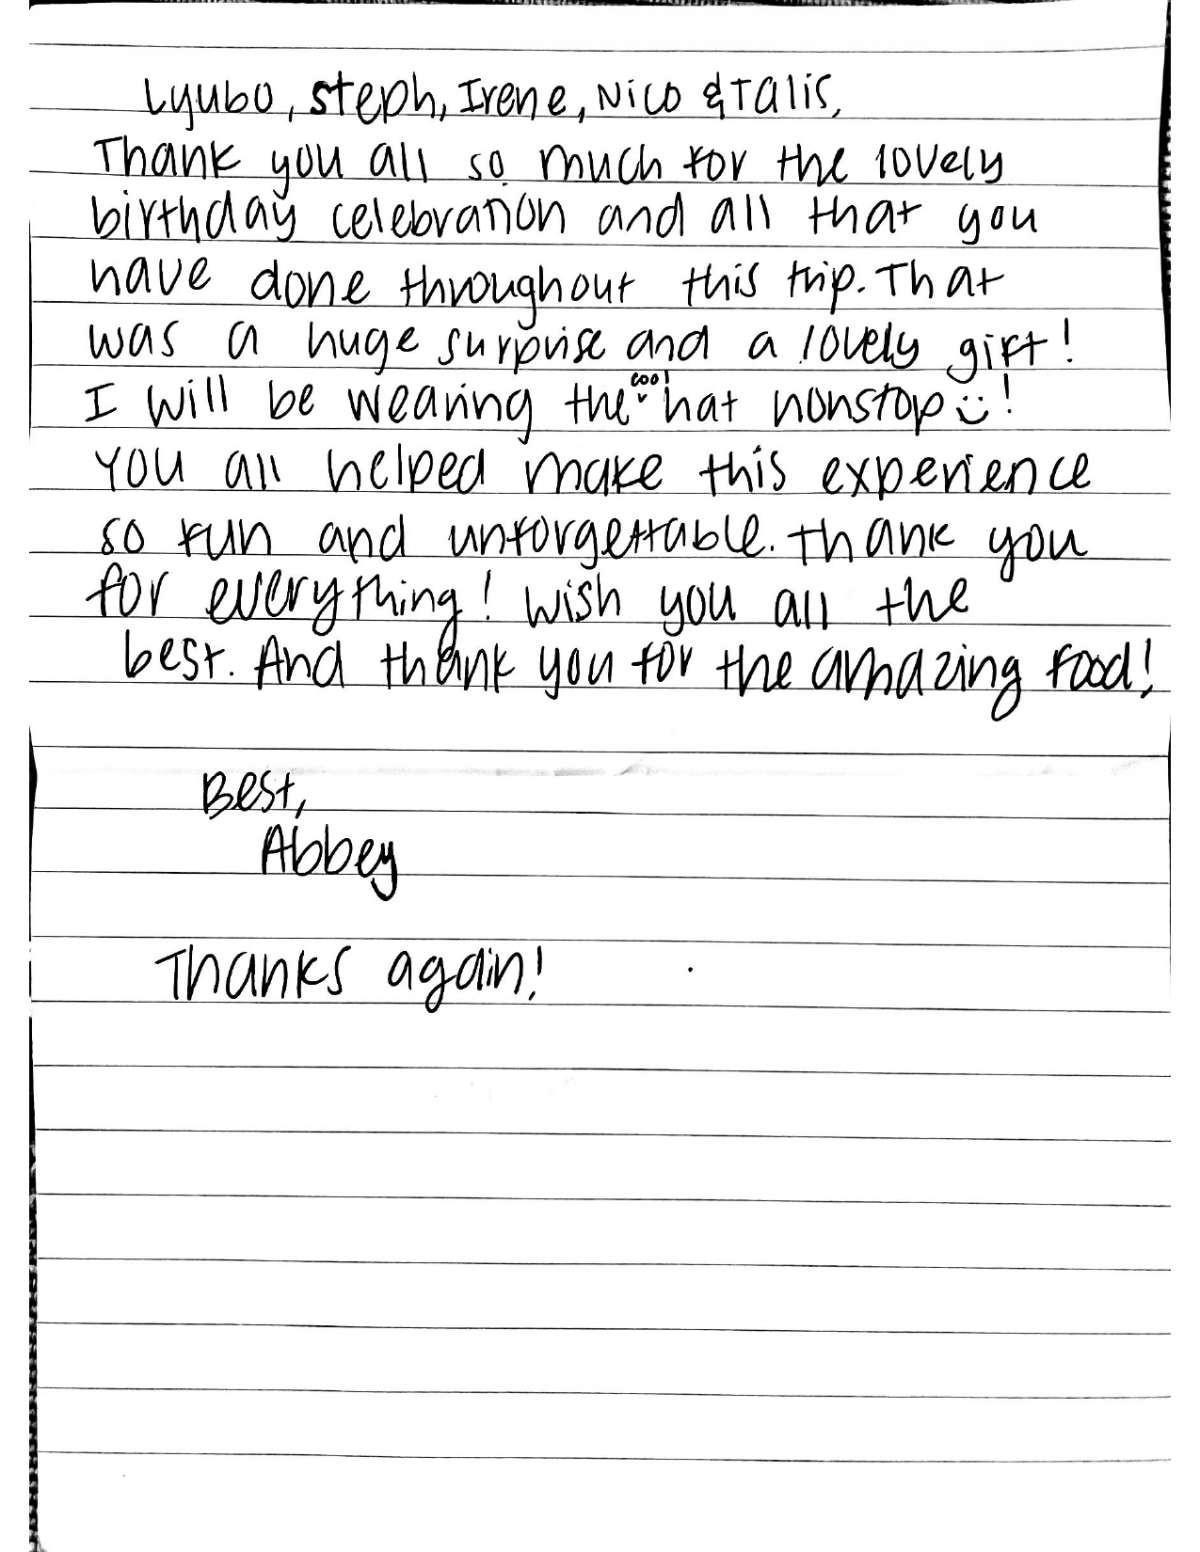 Lyubo, Steph, Irene, Nico & Talis,
Thank you all so much for the lovely
birthday celebration and all that you
have done throughout this trip. That
was a huge surprise and a lovely gift!
I will be wearing the cool hat nonstop :)!
You all helped make this experience
so fun and unforgettable. Thank you
for everything! Wish you all the
best. And thank you for the amazing food!
Best,
Abbey
Thanks again!